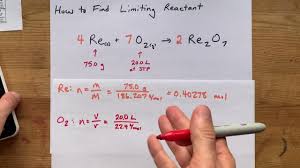 How to Find Limiting Reactant
4 Re(s) + 7 O₂(g) → 2 Re₂O₇
75.0 g 20.0 L
at STP
Re: n = m/M = 75.0 g / 186.207 g/mol = 0.40278 mol
O₂: n = V/V = 20.0 L / 22.4 L/mol